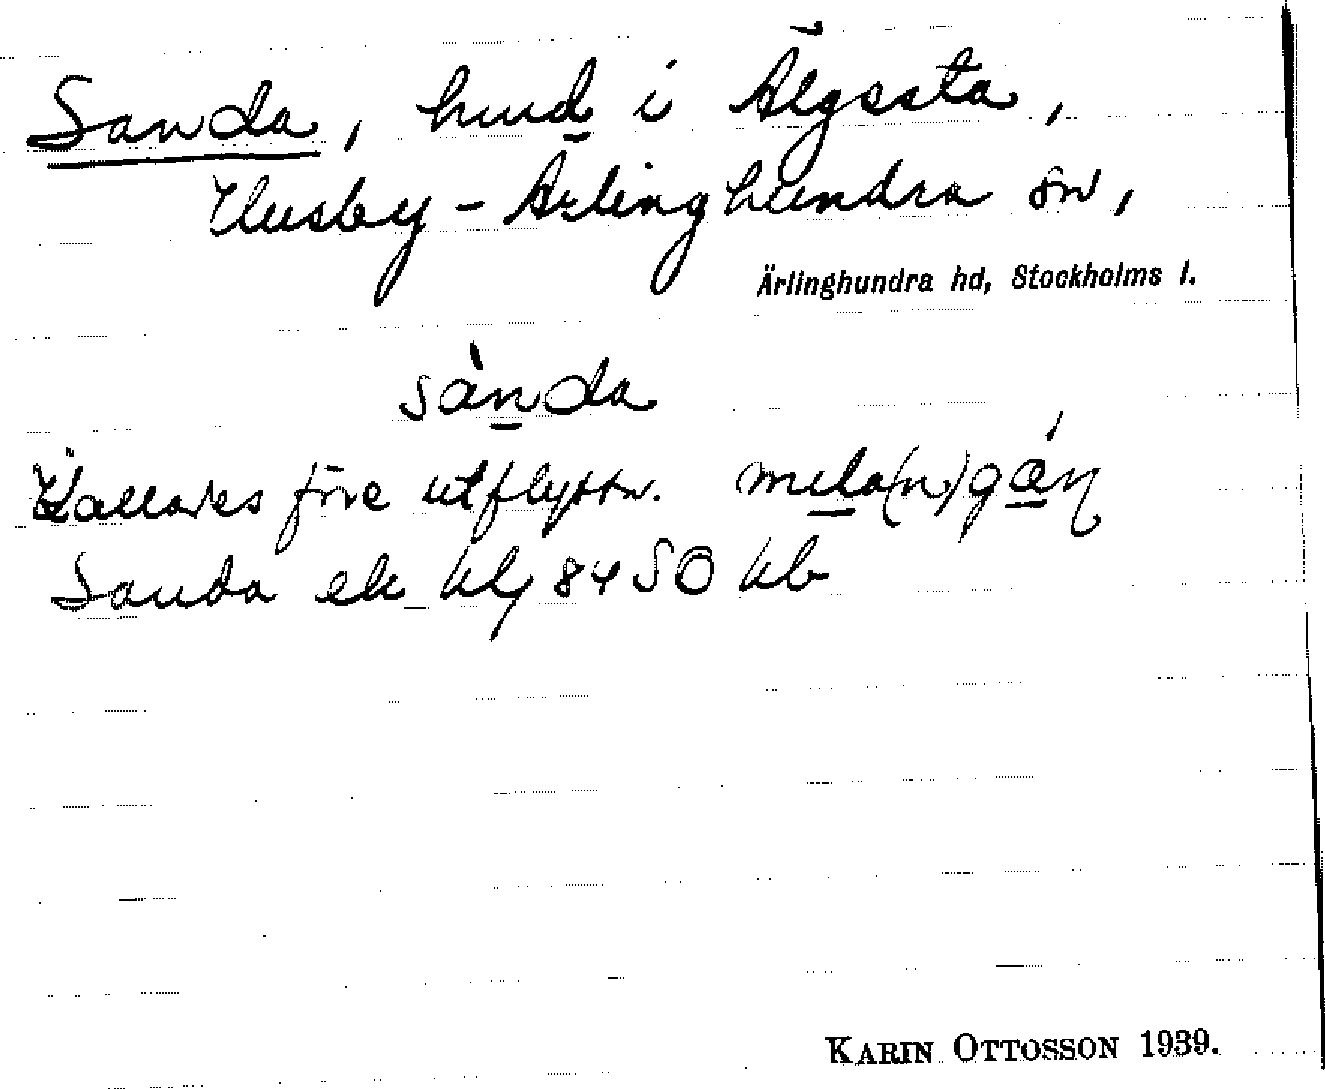 Sanda, hmd i Älgesta,
Husby-Ärlinghundra sn,
Ärlinghundra hd, Stockholms l.
sànda
Kallades före utflyttn.
Sanda ek bl 8450 kb
KARIN OTTOSSON 1939.